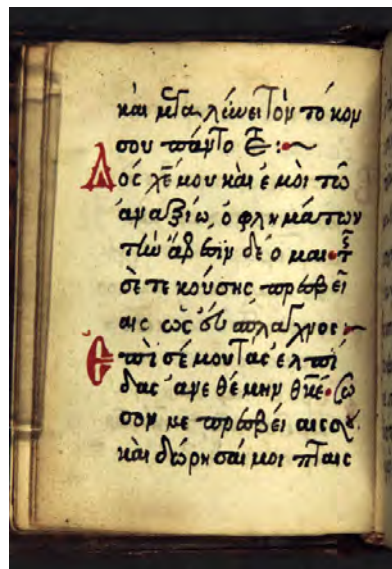 καὶ μεγαλύνει τὸν τό κον
σου πάντοτε :~
Δός χέ μου καὶ ἐμοὶ τῶ
ἀναξίω, ὀφλημάτων
τὴν ἄφεσιν δέομαι· τῆς
σὲ τεκούσης πρεσβεί
αις ὡς εὔσπλαγχνος :~
Ἐπὶ σέ μου τὰς ἐλπί
δας ἀνεθέμην θκε· σῶ
σον με πρεσβείαις σου
καὶ δώρησαί μοι πταισ